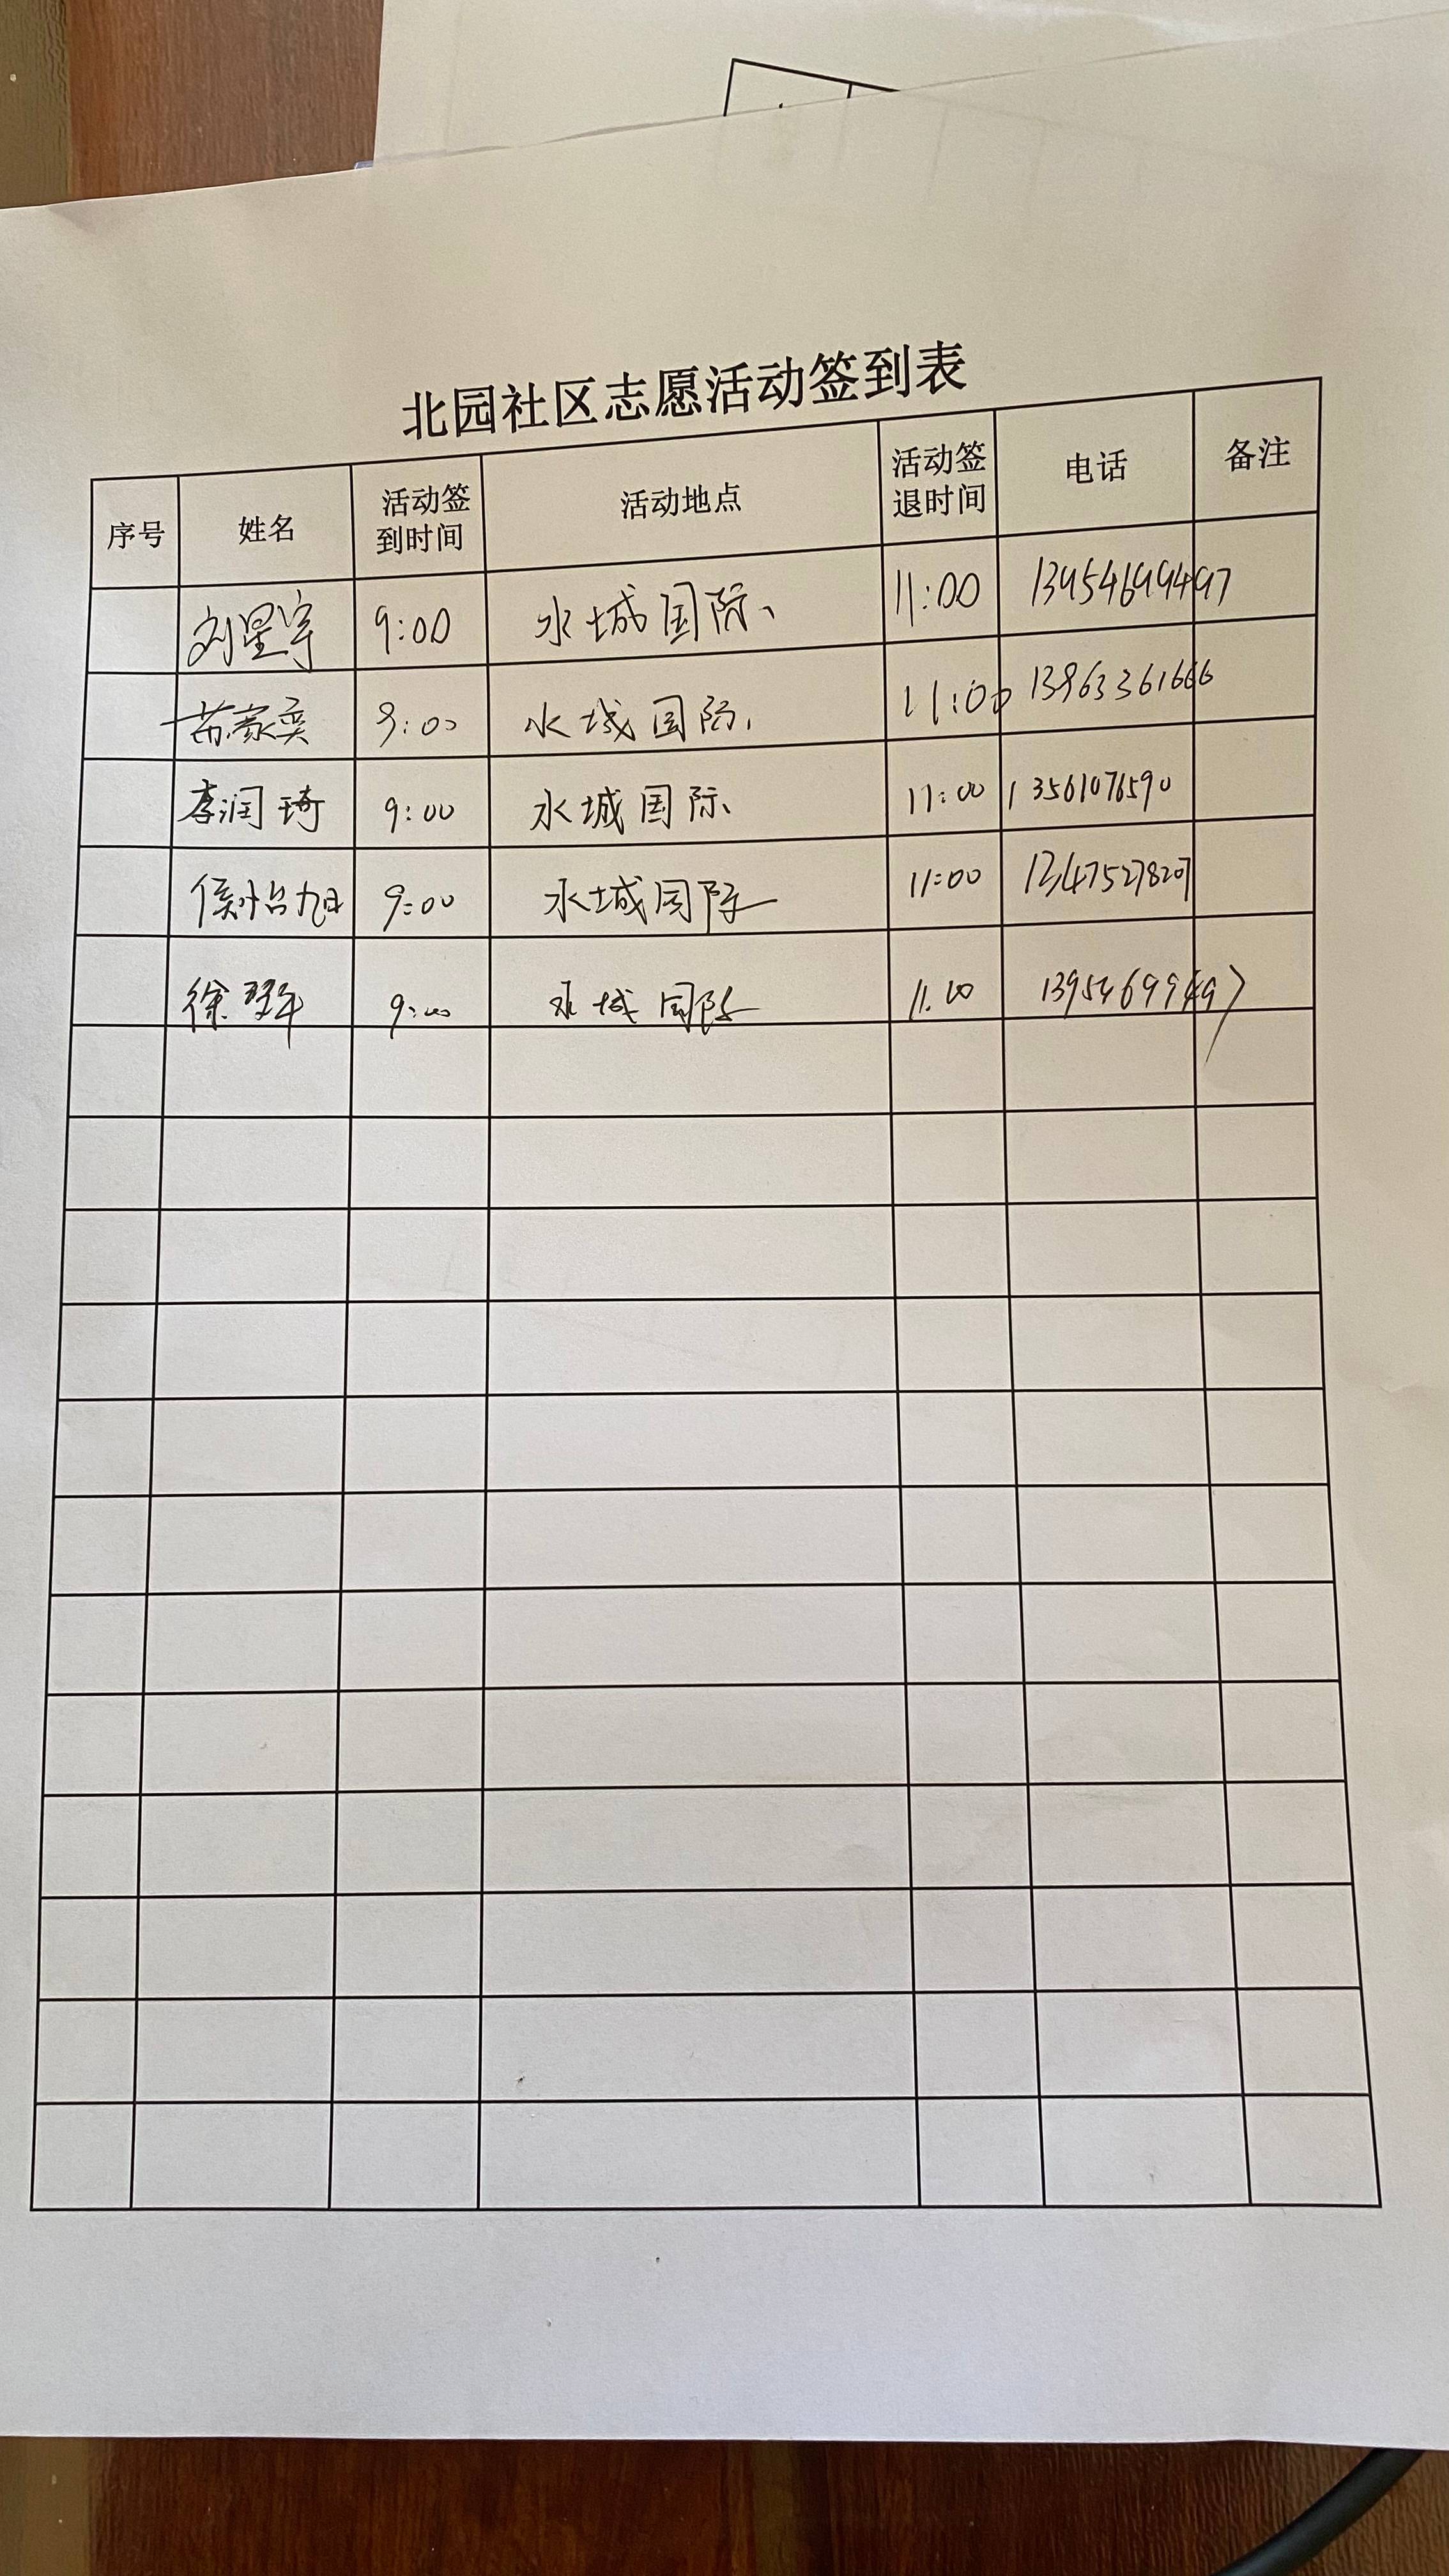 北园社区志愿活动签到表
序号 姓名 活动签到时间 活动地点 活动签退时间 电话 备注
刘星宇 9:00 水城国际、 11:00 13954699497
苗家奕 9:00 水城国际. 11:00 13963361666
李润琦 9:00 水城国际、 11:00 13561076590
侯怡旭 9:00 水城国际 11:00
徐 9:00 水城国际 11:00